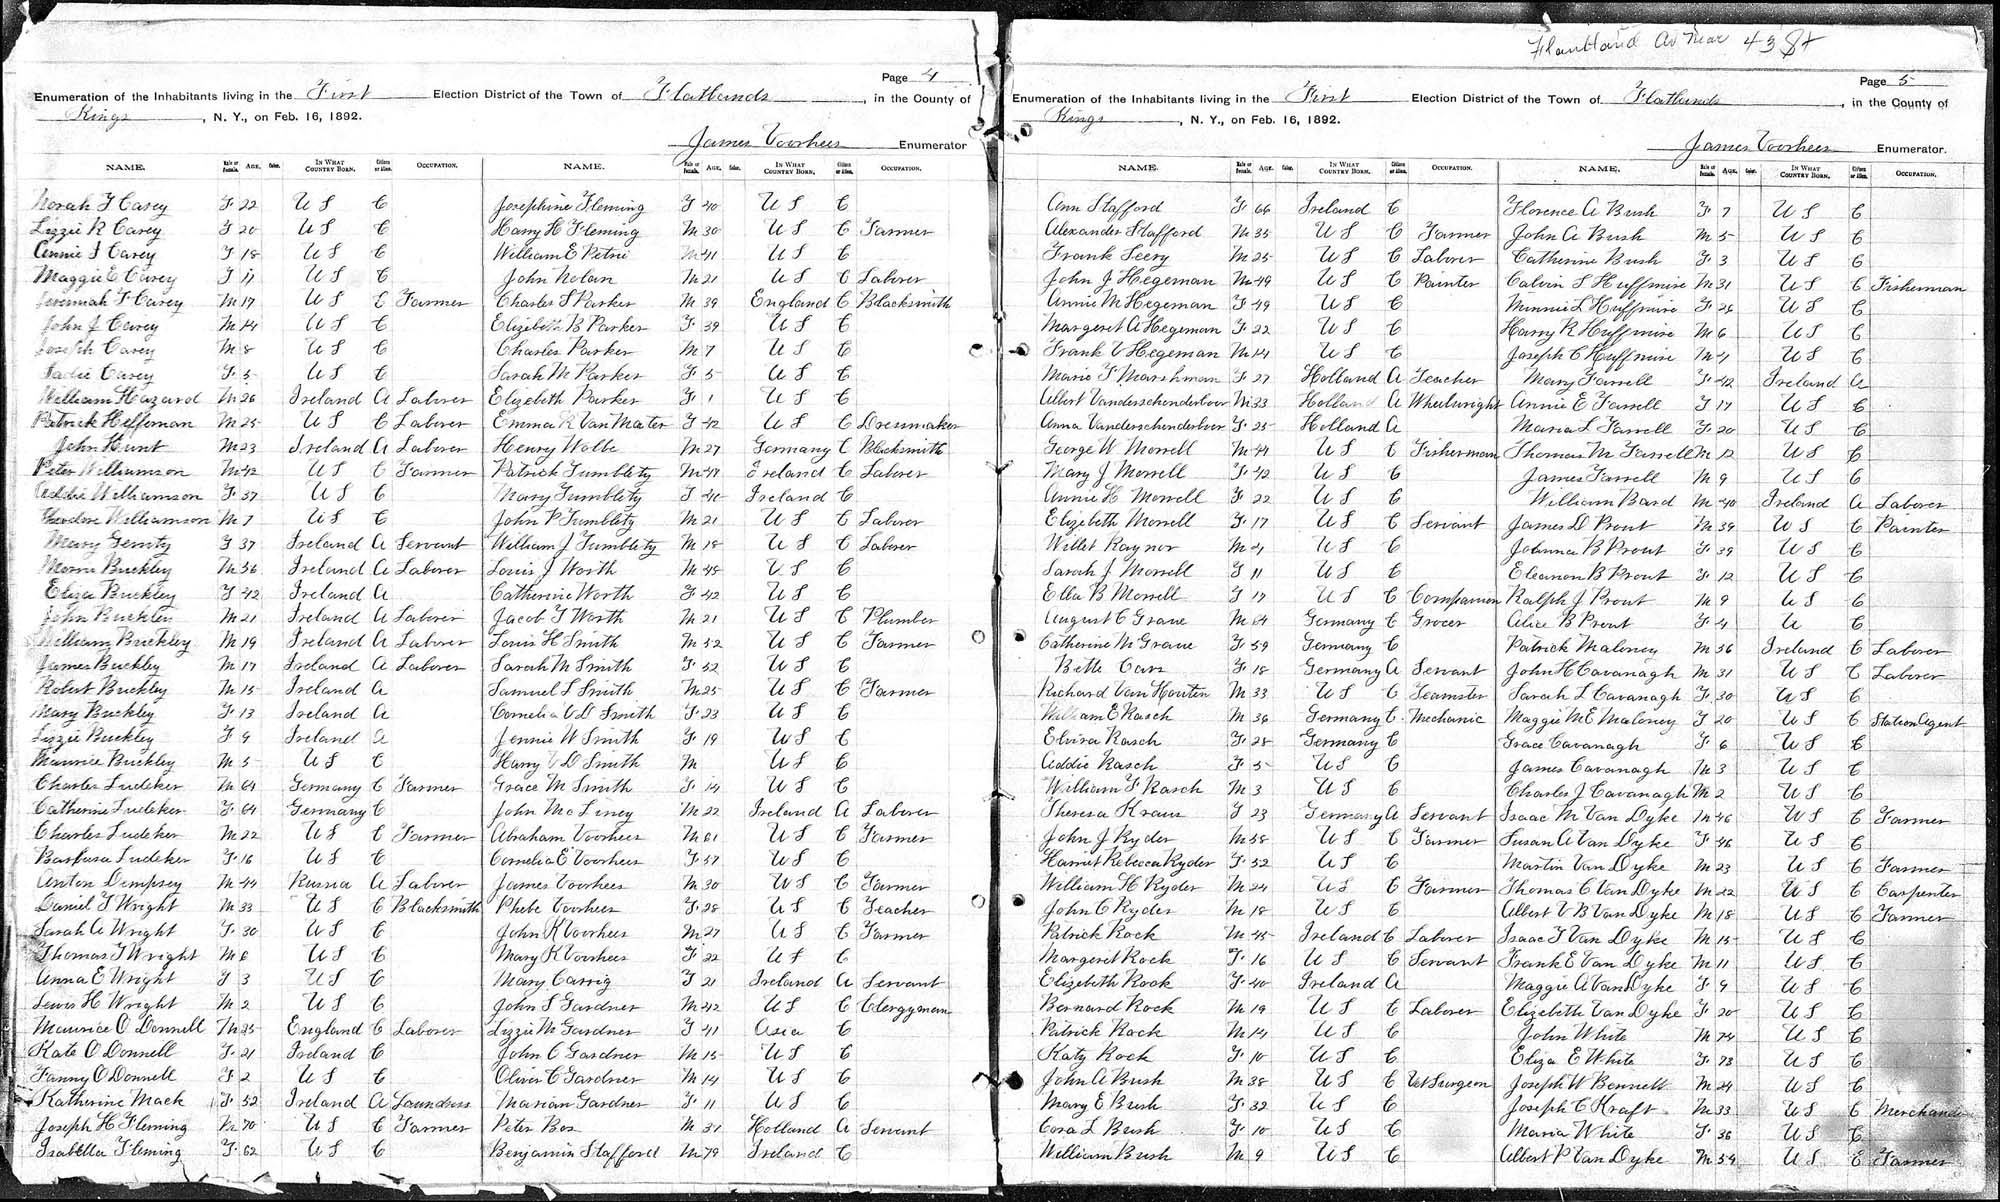 Page 4
Enumeration of the Inhabitants living in the First Election District of the Town of Flatlands, in the County of
Kings, N. Y., on Feb. 16, 1892.
James Voorhees Enumerator
NAME. Male or Female. AGE. Color. IN WHAT COUNTRY BORN. Citizen or Alien. OCCUPATION. NAME. Male or Female. AGE. Color. IN WHAT COUNTRY BORN. Citizen or Alien. OCCUPATION.
Norah F Casey F 22 U S C
Lizzie R Carey F 20 U S C
Annie I Carey F 18 U S C
Maggie E Carey F U S C
Jeremiah F Carey M 17 U S C Farmer
John J Carey M 14 U S C
Joseph Carey M 8 U S C
Sadie Carey F 5 U S C
William Hazard M 26 Ireland A Laborer
Patrick Heffernan M 25 U S C Laborer
John Hunt M 23 Ireland A Laborer
Peter Williamson M 42 U S C Farmer
Addie Williamson F 37 U S C
Theodore Williamson M 7 U S C
Mary Gerrity F 37 Ireland A Servant
Morris Buckley M 56 Ireland A Laborer
Eliza Buckley F 42 Ireland A
John Buckley M 21 Ireland A Laborer
William Buckley M 19 Ireland A Laborer
James Buckley M 17 Ireland A Laborer
Robert Buckley M 15 Ireland A
Mary Buckley F 13 Ireland A
Lizzie Buckley F 9 Ireland A
Maurice Buckley M 5 U S C
Charles Ludeker M 64 Germany C Farmer
Catherine Ludeker F 64 Germany C
Charles Ludeker M 22 U S C Farmer
Barbara Ludeker F 16 U S C
Anton Dempsey M 44 Russia A Laborer
Daniel T Wright M 33 U S C Blacksmith
Sarah A Wright F 30 U S C
Thomas T Wright M 6 U S C
Anna E Wright F 3 U S C
Lewis H Wright M 2 U S C
Maurice O Donnell M 25 England C Laborer
Kate O Donnell F 21 Ireland C
Fanny O Donnell F 2 U S C
Katherine Mack F 52 Ireland A Laundress
Joseph H Fleming M 70 U S C Farmer
Isabella Fleming F 62 U S C
Josephine Fleming F 40 U S C
Harry H Fleming M 30 U S C Farmer
William E Petrie M 41 U S C
John Nolan M 21 U S C Laborer
Charles S Parker M 39 England C Blacksmith
Elizabeth B Parker F 39 U S C
Charles Parker M 7 U S C
Sarah M Parker F 5 U S C
Elizabeth Parker F 1 U S C
Emma R Van Mater F 42 U S C Dressmaker
Henry Wolbe M 27 Germany C Blacksmith
Patrick Tumblety M 47 Ireland C Laborer
Mary Tumblety F Ireland C
John P Tumblety M 21 U S C Laborer
William J Tumblety M 18 U S C Laborer
Louis J Worth M 48 U S C
Catherine Worth F 42 U S C
Jacob T Worth M 21 U S C Plumber
Louis H Smith M 52 U S C Farmer
Sarah M Smith F 52 U S C
Samuel L Smith M 25 U S C Farmer
Cornelia V D Smith F 23 U S C
Jennie W Smith F 19 U S C
Harry V D Smith M U S C
Grace M Smith F 14 U S C
John Mc Liney M 22 Ireland A Laborer
Abraham Voorhees M 61 U S C Farmer
Cornelia E Voorhees F 57 U S C
James Voorhees M 30 U S C Farmer
Phebe Voorhees F 28 U S C Teacher
John K Voorhees M 27 U S C Farmer
Mary K Voorhees F 22 U S C
Mary Carrig F 21 Ireland A Servant
John S Gardner M 42 U S C Clergyman
Lizzie M Gardner F 41 Asia C
John C Gardner M 15 U S C
Oliver C Gardner M 14 U S C
Marian Gardner F 11 U S C
Peter Bos M 31 Holland A Servant
Benjamin Stafford M 79 Ireland C
Flatland Av near 43 St
Page 5
Enumeration of the Inhabitants living in the First Election District of the Town of Flatlands, in the County of
Kings, N. Y., on Feb. 16, 1892.
James Voorhees Enumerator.
NAME. Male or Female. AGE. Color. IN WHAT COUNTRY BORN. Citizen or Alien. OCCUPATION. NAME. Male or Female. AGE. Color. IN WHAT COUNTRY BORN. Citizen or Alien. OCCUPATION.
Ann Stafford F 66 Ireland C
Alexander Stafford M 35 U S C Farmer
Frank Seery M 25 U S C Laborer
John J Hegeman M 49 U S C Painter
Annie M Hegeman F 49 U S C
Margeret A Hegeman F 22 U S C
Frank V Hegeman M 14 U S C
Marie F Marshman F 27 Holland A Teacher
Albert Vanderschenderlover M 33 Holland A Wheelwright
Anna Vanderschenderlver F 25 Holland A
George W Morrell M 44 U S C Fisherman
Mary J Morrell F 42 U S C
Annie H Morrell F 22 U S C
Elizebeth Morrell F 17 U S C Servant
Willet Raynor M U S C
Sarah J Morrell F 11 U S C
Ella B Morrell F 17 U S C Companion
August C Grave M 64 Germany C Grocer
Catherine M Grave F 59 Germany C
Bette F 18 Germany A Servant
Richard Van Houtin M 33 U S C Teamster
William E Rasch M 36 Germany C Mechanic
Elvira Rasch F 28 Germany C
Addie Rasch F 5 U S C
William F Rasch M 3 U S C
Theresa Kraus F 23 Germany A Servant
John J Ryder M 58 U S C Farmer
Harriet Rebecca Ryder F 52 U S C
William H Ryder M 24 U S C Farmer
John C Ryder M 18 U S C
Patrick Rock M 45 Ireland C Laborer
Margeret Rock F 16 U S C Servant
Elizebeth Rock F 40 Ireland A
Bernard Rock M 19 U S C Laborer
Patrick Rock M 14 U S C
Katy Rock F 10 U S C
John A Bush M 38 U S C Vet Surgeon
Mary E Bush F 32 U S C
Cora L Bush F 10 U S C
William Bush M 9 U S C
Florence A Bush F 7 U S C
John A Bush M 5 U S C
Catherine Bush F 3 U S C
Calvin S Huffmire M 31 U S C Fisherman
Minnie L Huffmire F 26 U S C
Harry R Huffmire M 6 U S C
Joseph C Huffmire M 4 U S C
Mary Farrell F 42 Ireland A
Annie E Farrell F 17 U S C
Maria L Farrell F 20 U S C
Thomas M Farrell M 12 U S C
James Farrell M 9 U S C
William Bard M 40 Ireland A Laborer
James D Prout M 39 U S C Painter
Johnna B Prout F 39 U S C
Eleanon B Prout F 12 U S C
Ralph J Prout M 9 U S C
Alice B Prout F 4 U C
Patrick Maloney M 56 Ireland C Laborer
John H Cavanagh M 31 U S C Laborer
Sarah L Cavanagh F 30 U S C
Maggie M E Maloney F 20 U S C Station Agent
Grace Cavanagh F 6 U S C
James Cavanagh M 3 U S C
Charles J Cavanagh M 2 U S C
Isaac M Van Dyke M 46 U S C Farmer
Susan A Van Dyke F 46 U S C
Martin Van Dyke M 23 U S C Farmer
Thomas C Van Dyke M 22 U S C Carpenter
Albert V B Van Dyke M 18 U S C Farmer
Isaac T Van Dyke M 15 U S C
Frank E Van Dyke M 11 U S C
Maggie A Van Dyke F 9 U S C
Elizebeth Van Dyke F 20 U S C
John White M 74 U S C
Eliza E White F 73 U S C
Joseph W Bennett M 24 U S C
Joseph C Kraft M 33 U S C Merchand
Maria White F 36 U S C
Albert P Van Dyke M 54 U S C Farmer